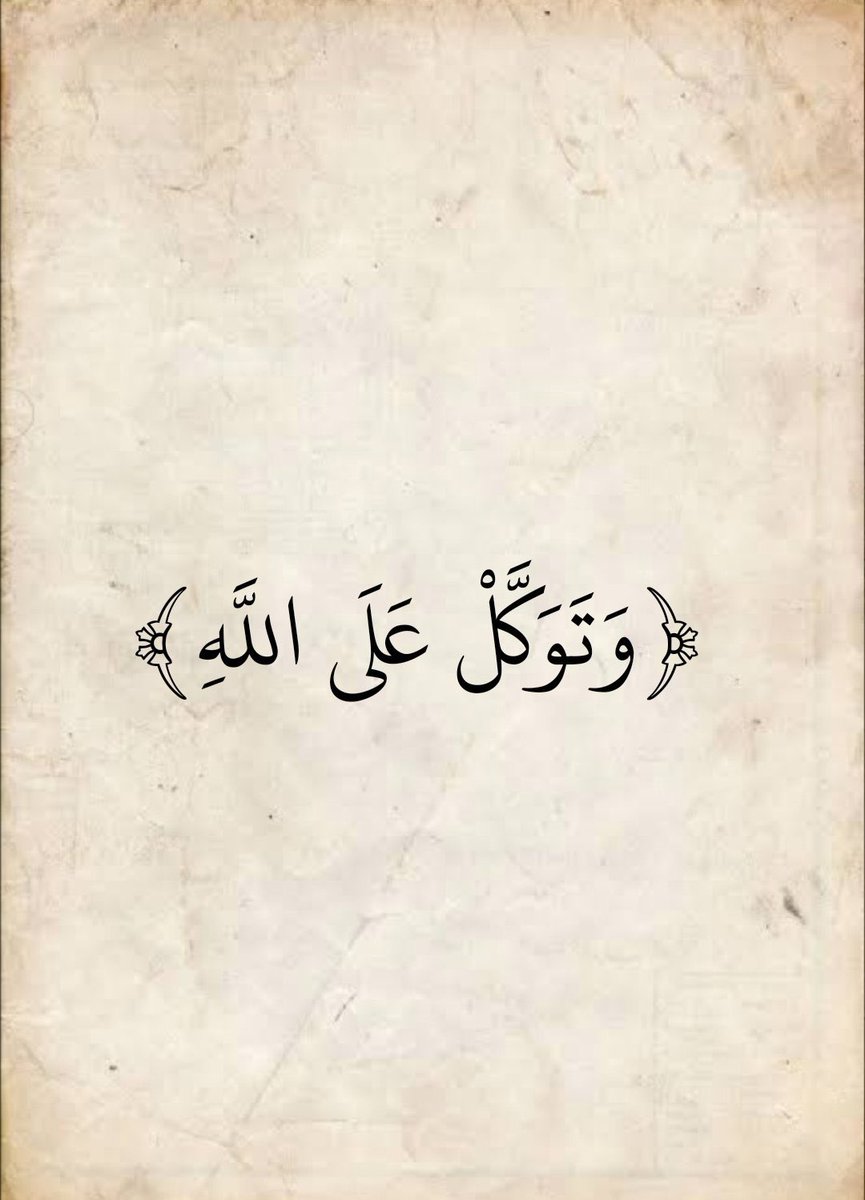 ﴿وَتَوَكَّلْ عَلَى اللَّهِ﴾